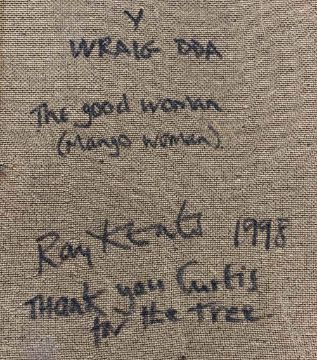 Y
WRAIG DDA
The good woman
(Mango woman)
Ray 1998
THANK you Curtis
for the Tree